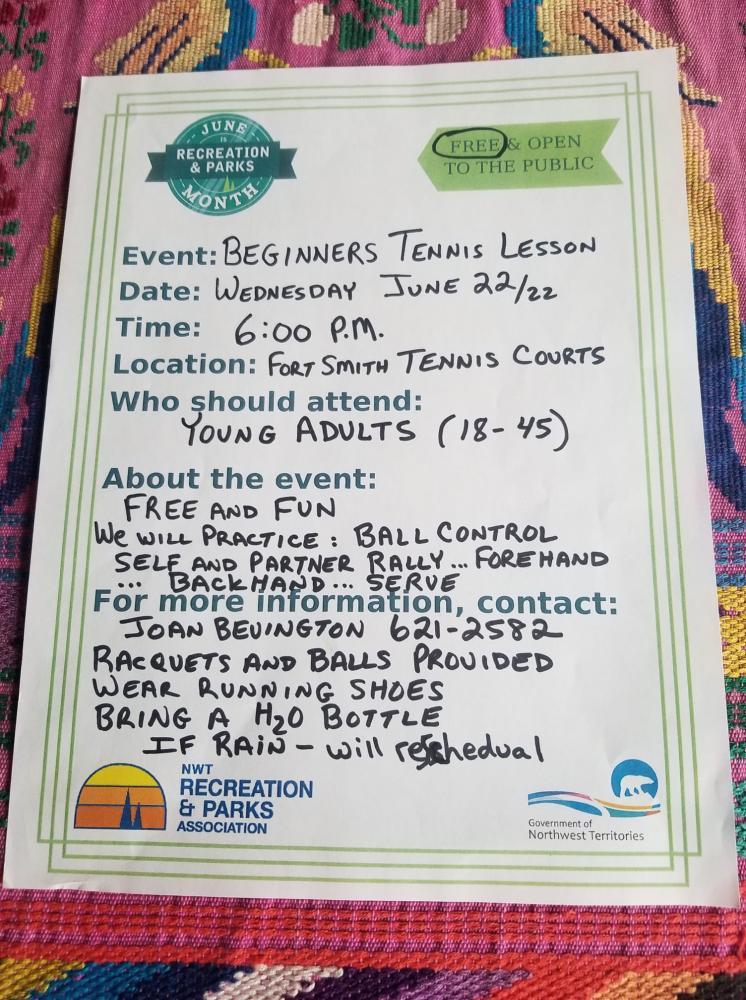 JUNE
IS
RECREATION
& PARKS
MONTH
FREE & OPEN
TO THE PUBLIC
Event: BEGINNERS TENNIS LESSON
Date: WEDNESDAY JUNE 22/22
Time: 6:00 P.M.
Location: FORT SMITH TENNIS COURTS
Who should attend:
YOUNG ADULTS (18-45)
About the event:
FREE AND FUN
WE WILL PRACTICE: BALL CONTROL
SELF AND PARTNER RALLY... FOREHAND
... BACKHAND... SERVE
For more information, contact:
JOAN BEVINGTON 621-2582
RACQUETS AND BALLS PROVIDED
WEAR RUNNING SHOES
BRING A H2O BOTTLE
IF RAIN - will reschedual
NWT
RECREATION
& PARKS
ASSOCIATION
Government of
Northwest Territories